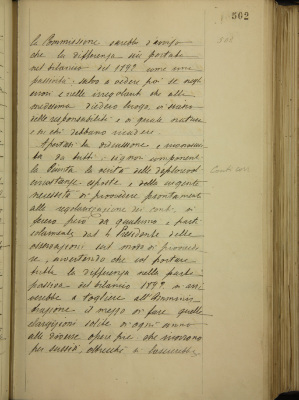 562
la Commissione sarebbe d'avviso
che la differenza sia portata
nel bilancio del 1899 come una
passività, salvo a vedere poi se negli
errori e nelle irregolarità che alla
medesima diedero luogo, vi siano
delle responsabilità e di quale natura
e su chi debbano ricadere.
Aperta la discussione e riconosciu
ta da tutti i signori componenti
la Giunta la verità delle deplorevoli
circostanze esposte e della urgente
necessità di provvedere prontamente
alla regolarizzazione dei conti, si
fecero però da qualcuno e parti
colarmente dal Presidente delle
osservazioni sul modo di provvede
re, avvertendo che col portare
tutta la differenza nella parte
passiva del bilancio 1899 si ver
rebbe a togliere all'Amminis
trazione il mezzo di fare quelle
elargizioni solite di ogni anno
alle diverse opere pie che
per sussidi, oltrecchè si lascerebbe